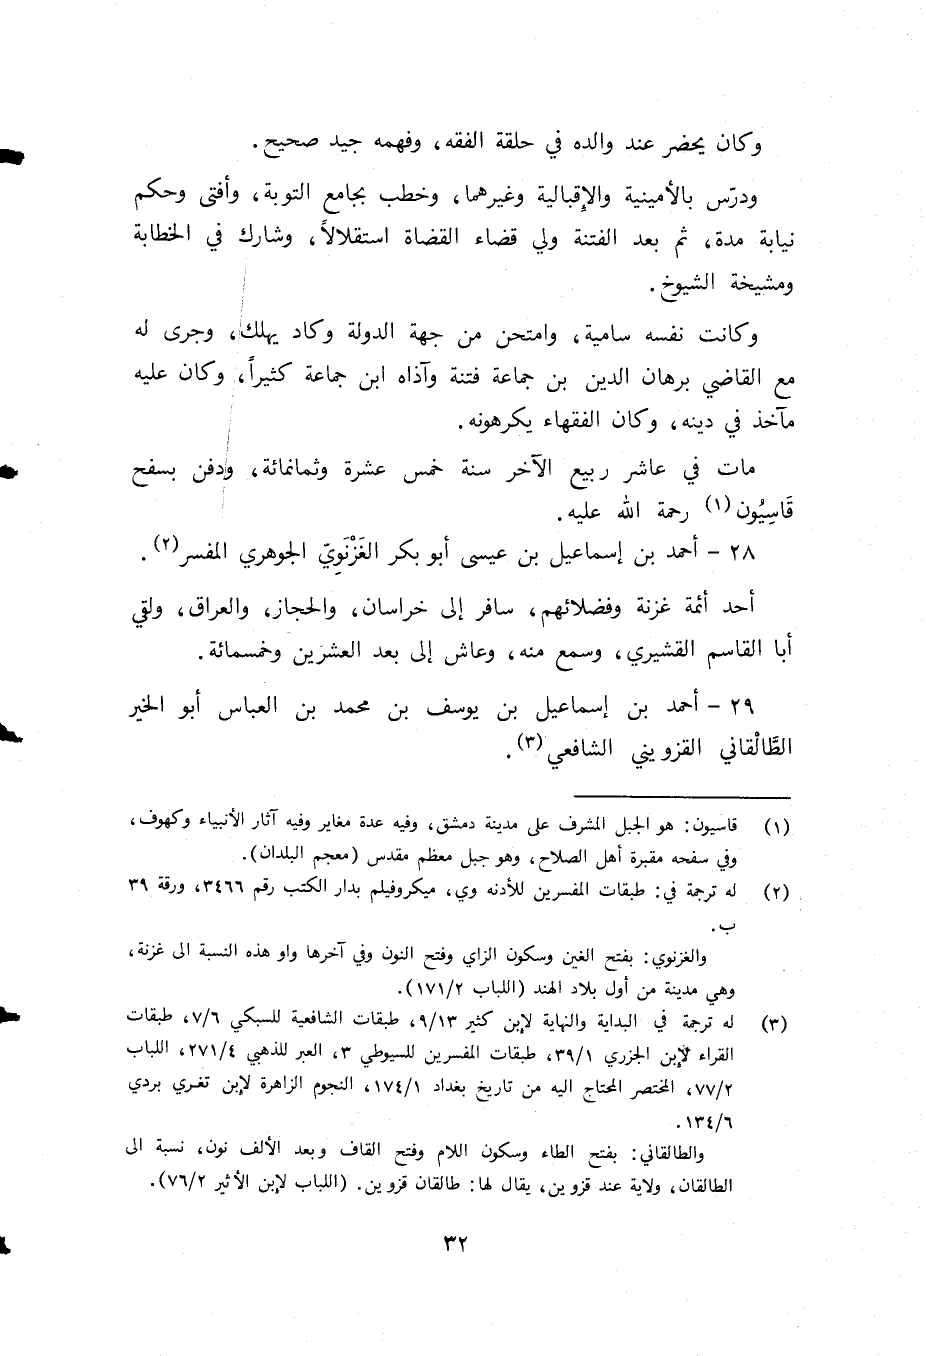 وكان يحضر عند والده في حلقة الفقه، وفهمه جيد صحيح.
ودرّس بالأمينية والإقبالية وغيرهما، وخطب بجامع التوبة، وأفتى وحكم
نيابة مدة، ثم بعد الفتنة ولي قضاء القضاة استقلالاً، وشارك في الخطابة
ومشيخة الشيوخ.
وكانت نفسه سامية، وامتحن من جهة الدولة وكاد يهلك، وجرى له
مع القاضي برهان الدين بن جماعة فتنة وآذاه ابن جماعة كثيراً، وكان عليه
مآخذ في دينه، وكان الفقهاء يكرهونه.
مات في عاشر ربيع الآخر سنة خمس عشرة وثمانمائة، ودفن بسفح
قَاسِيُون(١) رحمة الله عليه.
٢٨ - أحمد بن إسماعيل بن عيسى أبو بكر الغَزْنَوِيّ الجوهري المفسر(٢).
أحد أئمة غزنة وفضلائهم، سافر إلى خراسان، والحجاز، والعراق، ولقي
أبا القاسم القشيري، وسمع منه، وعاش إلى بعد العشرين وخمسمائة.
٢٩ - أحمد بن إسماعيل بن يوسف بن محمد بن العباس أبو الخير
الطَّالْقاني القزويني الشافعي(٣).
(١) قاسيون: هو الجبل المشرف على مدينة دمشق، وفيه عدة مغاير وفيه آثار الأنبياء وكهوف،
وفي سفحه مقبرة أهل الصلاح، وهو جبل معظم مقدس (معجم البلدان).
(٢) له ترجمة في: طبقات المفسرين للأدنه وي، ميكروفيلم بدار الكتب رقم ٣٤٦٦، ورقة ٣٩
ب.
والغزنوي: بفتح الغين وسكون الزاي وفتح النون وفي آخرها واو هذه النسبة الى غزنة،
وهي مدينة من أول بلاد الهند (اللباب ١٧١/٢).
(٣) له ترجمة في البداية والنهاية لإبن كثير ٩/١٣، طبقات الشافعية للسبكي ٧/٦، طبقات
القراء لإبن الجزري ٣٩/١، طبقات المفسرين للسيوطي ٣، العبر للذهبي ٢٧١/٤، اللباب
٧٧/٢، المختصر المحتاج اليه من تاريخ بغداد ١٧٤/١، النجوم الزاهرة لإبن تغري بردي
١٣٤/٦.
والطالقاني: بفتح الطاء وسكون اللام وفتح القاف وبعد الألف نون، نسبة الى
الطالقان، ولاية عند قزوين، يقال لها: طالقان قزوين. (اللباب لإبن الأثير ٧٦/٢).
٣٢